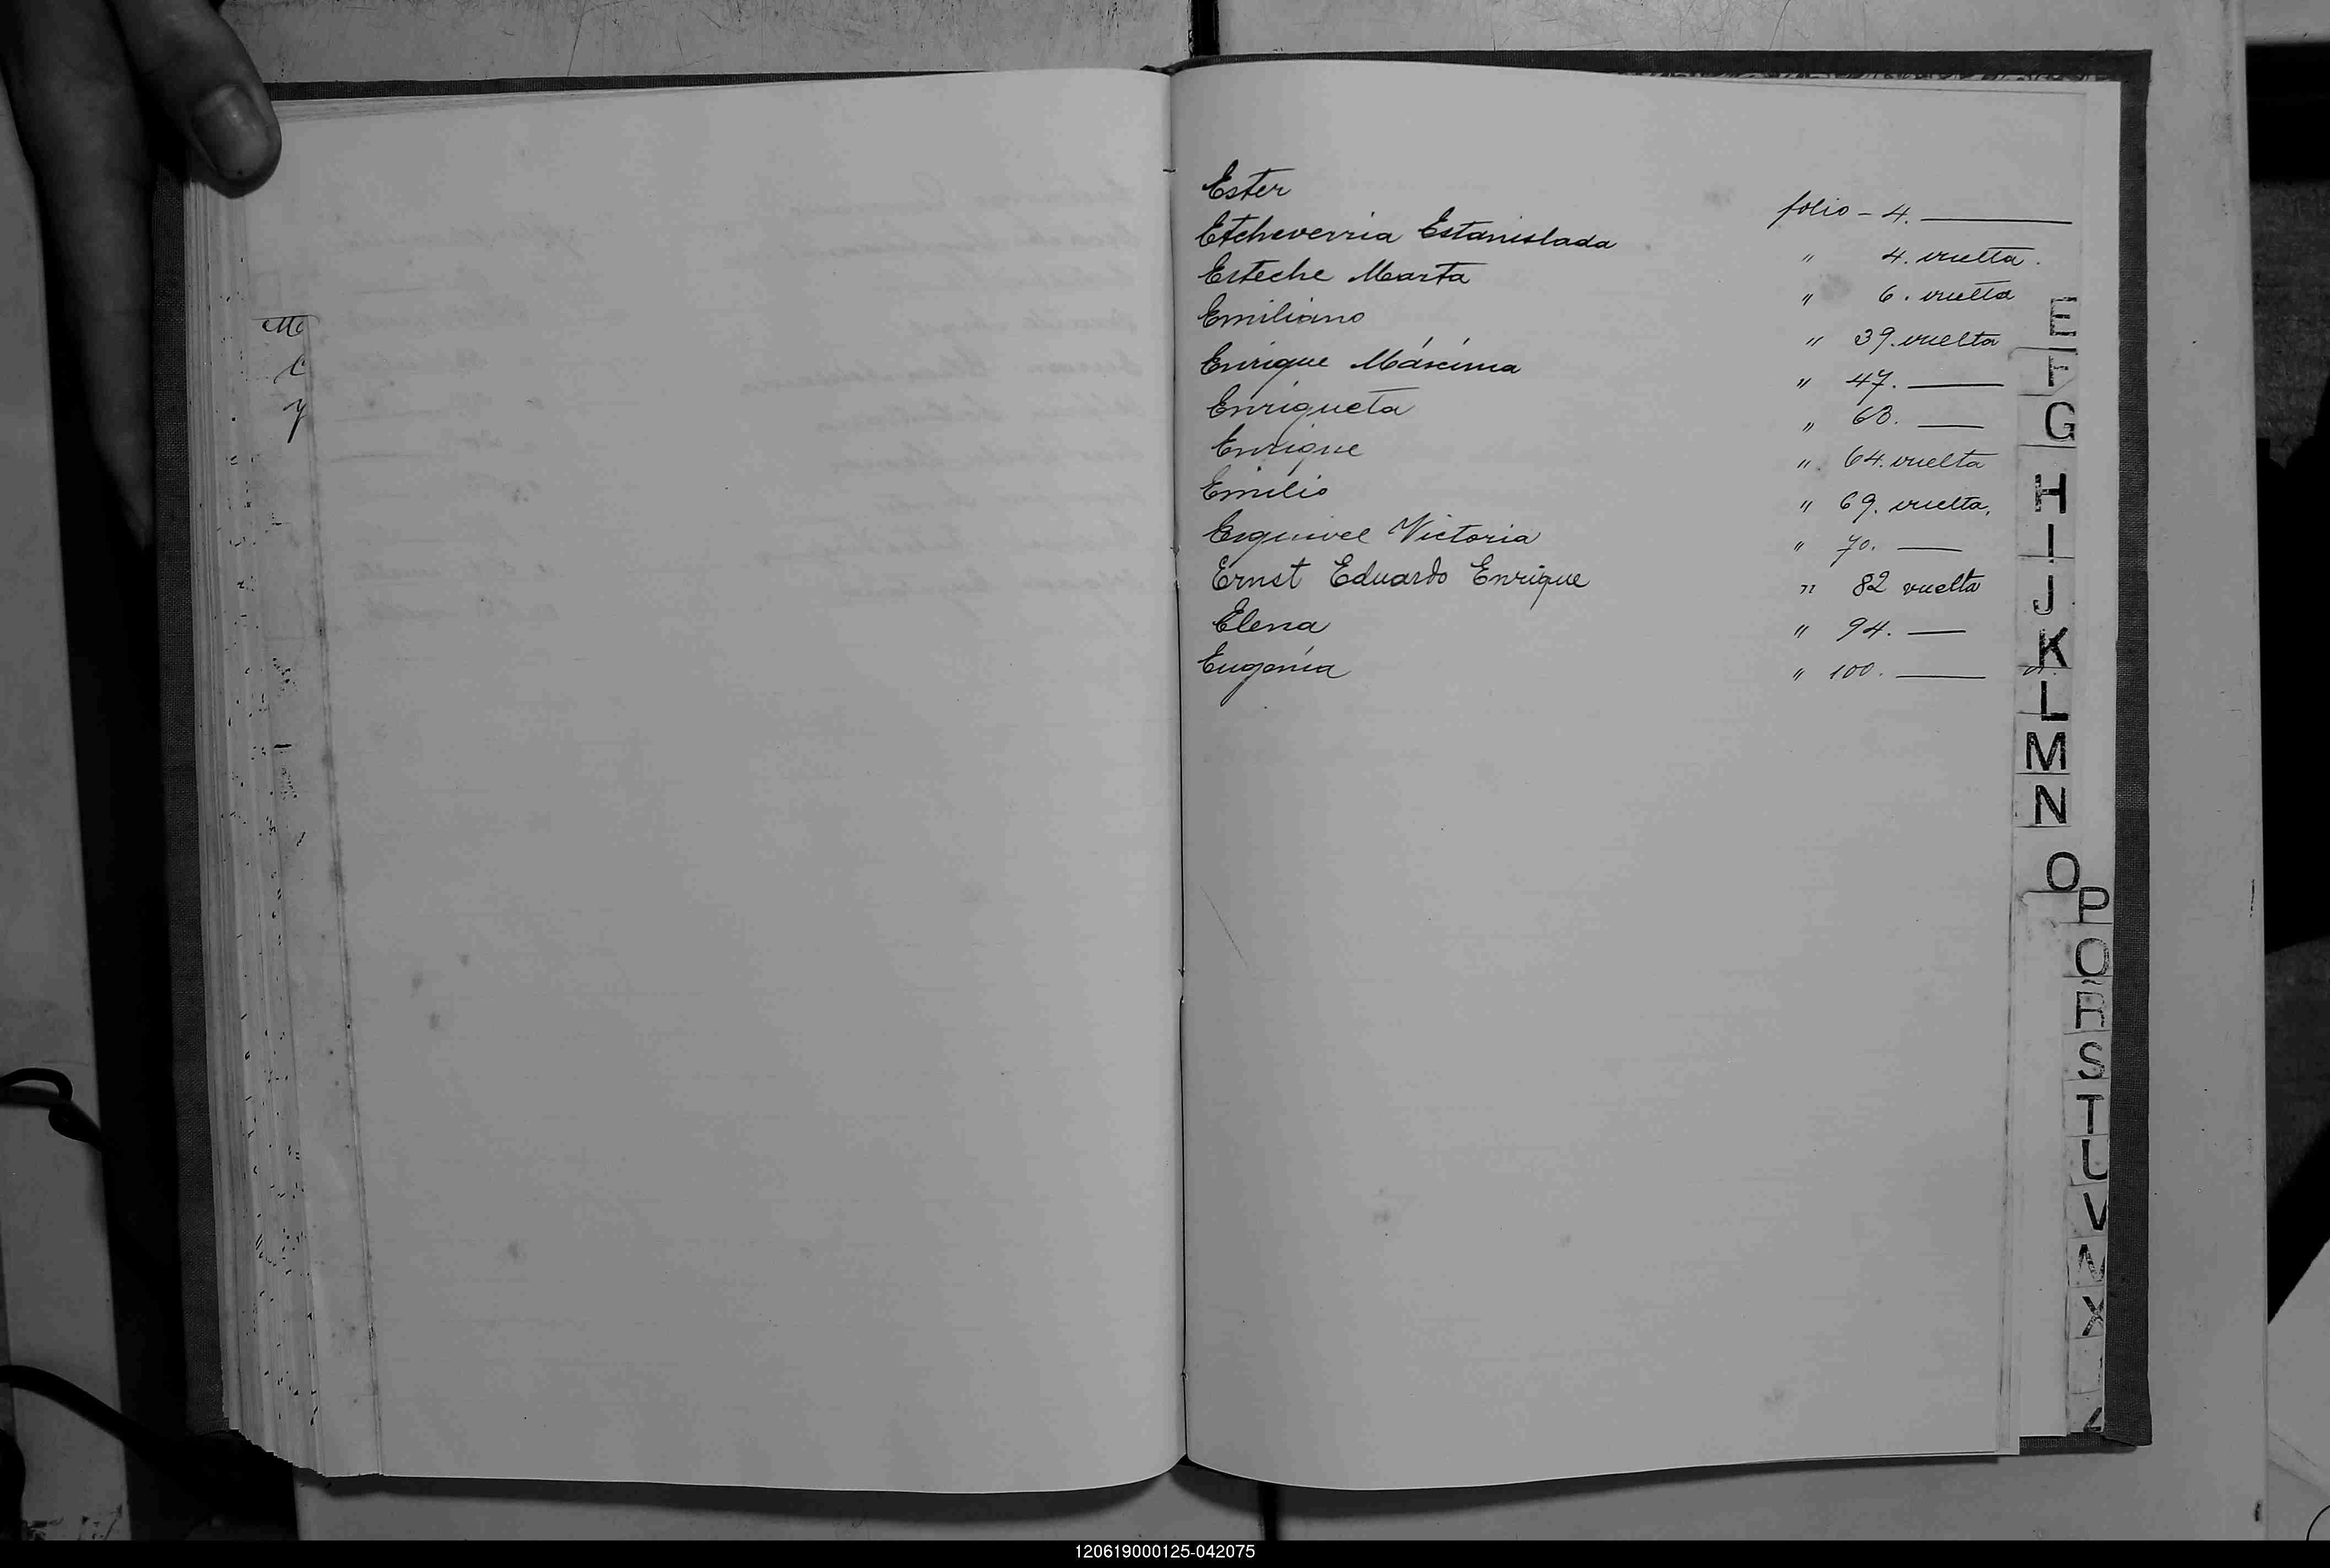 Ester folio - 4. ———
Etcheverria Estanislada " 4. vuelta.
Esteche Marta " 6. vuelta
Emiliano " 39. vuelta
Enrique Máscima " 47. ———
Enriqueta " 63. ———
Enrique " 64. vuelta
Emilio " 69. vuelta,
Esquivel Victoria " 70. ———
Ernst Eduardo Enrique " 82 vuelta
Elena " 94. ———
Eugenia " 100. ———
E
F
G
H
I
J
K
L
M
N
O
P
Q
R
S
T
U
V
X
Z
120619000125-042075